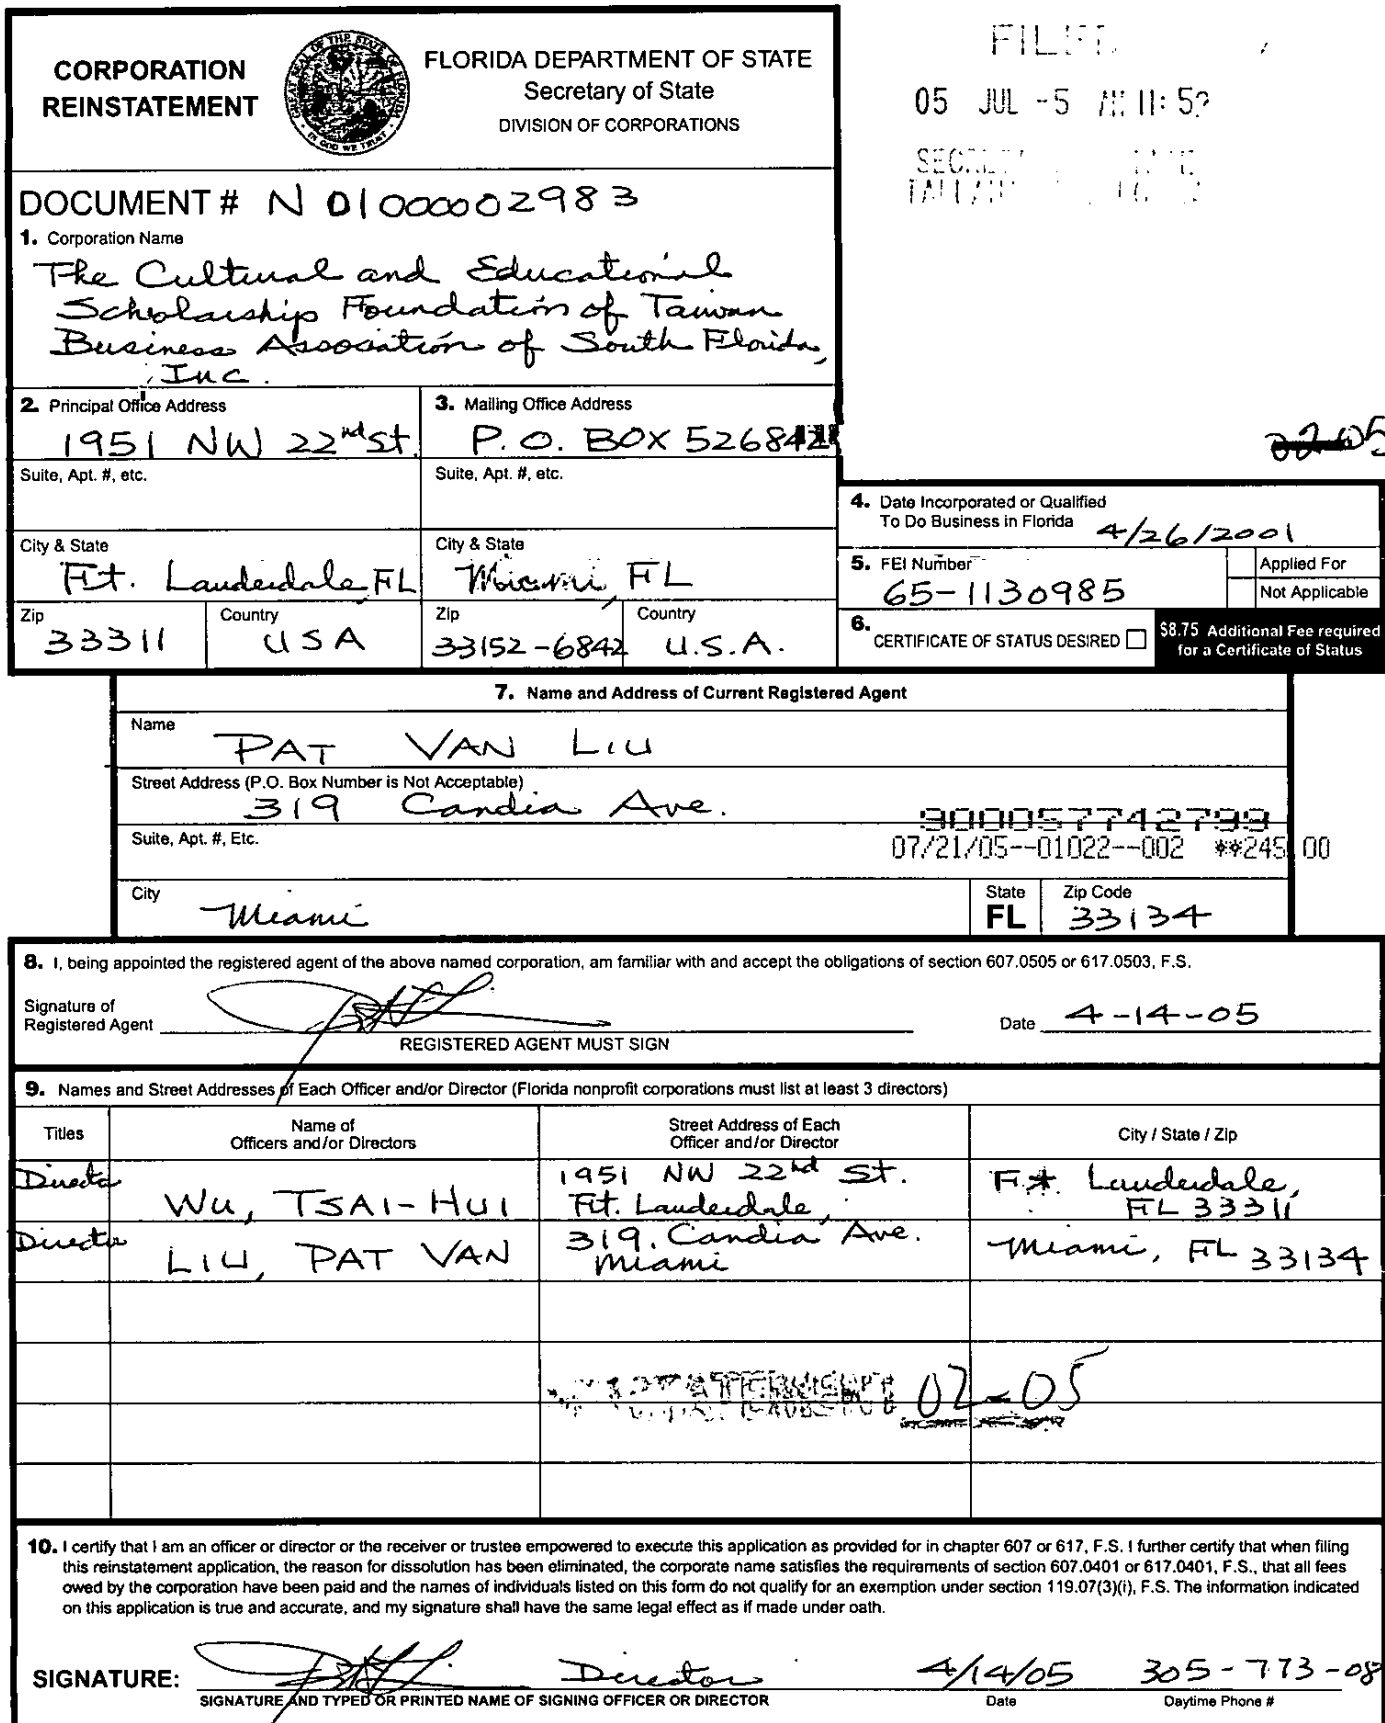 CORPORATION
REINSTATEMENT
GREAT SEAL OF THE STATE OF FLORIDA
IN GOD WE TRUST
FLORIDA DEPARTMENT OF STATE
Secretary of State
DIVISION OF CORPORATIONS
05 JUL -5 11:5
DOCUMENT # N 01000002983
1. Corporation Name
The Cultural and Educational
Scholarship Foundation of Taiwan
Business Association of South Florida,
Inc.
2. Principal Office Address
1951 NW 22nd St.
3. Mailing Office Address
P.O. BOX 526842
02-05
Suite, Apt. #, etc.
Suite, Apt. #, etc.
4. Date Incorporated or Qualified
To Do Business in Florida 4/26/2001
City & State
Ft. Lauderdale, FL
City & State
Miami, FL
5. FEI Number
65-1130985
Applied For
Not Applicable
Zip
33311
Country
USA
Zip
33152-6842
Country
U.S.A.
6. CERTIFICATE OF STATUS DESIRED
$8.75 Additional Fee required
for a Certificate of Status
7. Name and Address of Current Registered Agent
Name
PAT VAN LIU
Street Address (P.O. Box Number is Not Acceptable)
319 Candia Ave.
900057742799
Suite, Apt. #, Etc.
07/21/05--01022--002 **245.00
City
Miami
State
FL
Zip Code
33134
8. I, being appointed the registered agent of the above named corporation, am familiar with and accept the obligations of section 607.0505 or 617.0503, F.S.
Signature of
Registered Agent
Date 4-14-05
REGISTERED AGENT MUST SIGN
9. Names and Street Addresses of Each Officer and/or Director (Florida nonprofit corporations must list at least 3 directors)
Titles
Name of
Officers and/or Directors
Street Address of Each
Officer and/or Director
City / State / Zip
Director
WU, TSAI-HUI
1951 NW 22nd St.
Ft. Lauderdale,
Ft. Lauderdale,
FL 33311
Director
LIU, PAT VAN
319, Candia Ave.
Miami
Miami, FL 33134
02-05
10. I certify that I am an officer or director or the receiver or trustee empowered to execute this application as provided for in chapter 607 or 617, F.S. I further certify that when filing
this reinstatement application, the reason for dissolution has been eliminated, the corporate name satisfies the requirements of section 607.0401 or 617.0401, F.S., that all fees
owed by the corporation have been paid and the names of individuals listed on this form do not qualify for an exemption under section 119.07(3)(i), F.S. The information indicated
on this application is true and accurate, and my signature shall have the same legal effect as if made under oath.
SIGNATURE:
Director
4/14/05
305-773-08
SIGNATURE AND TYPED OR PRINTED NAME OF SIGNING OFFICER OR DIRECTOR
Date
Daytime Phone #